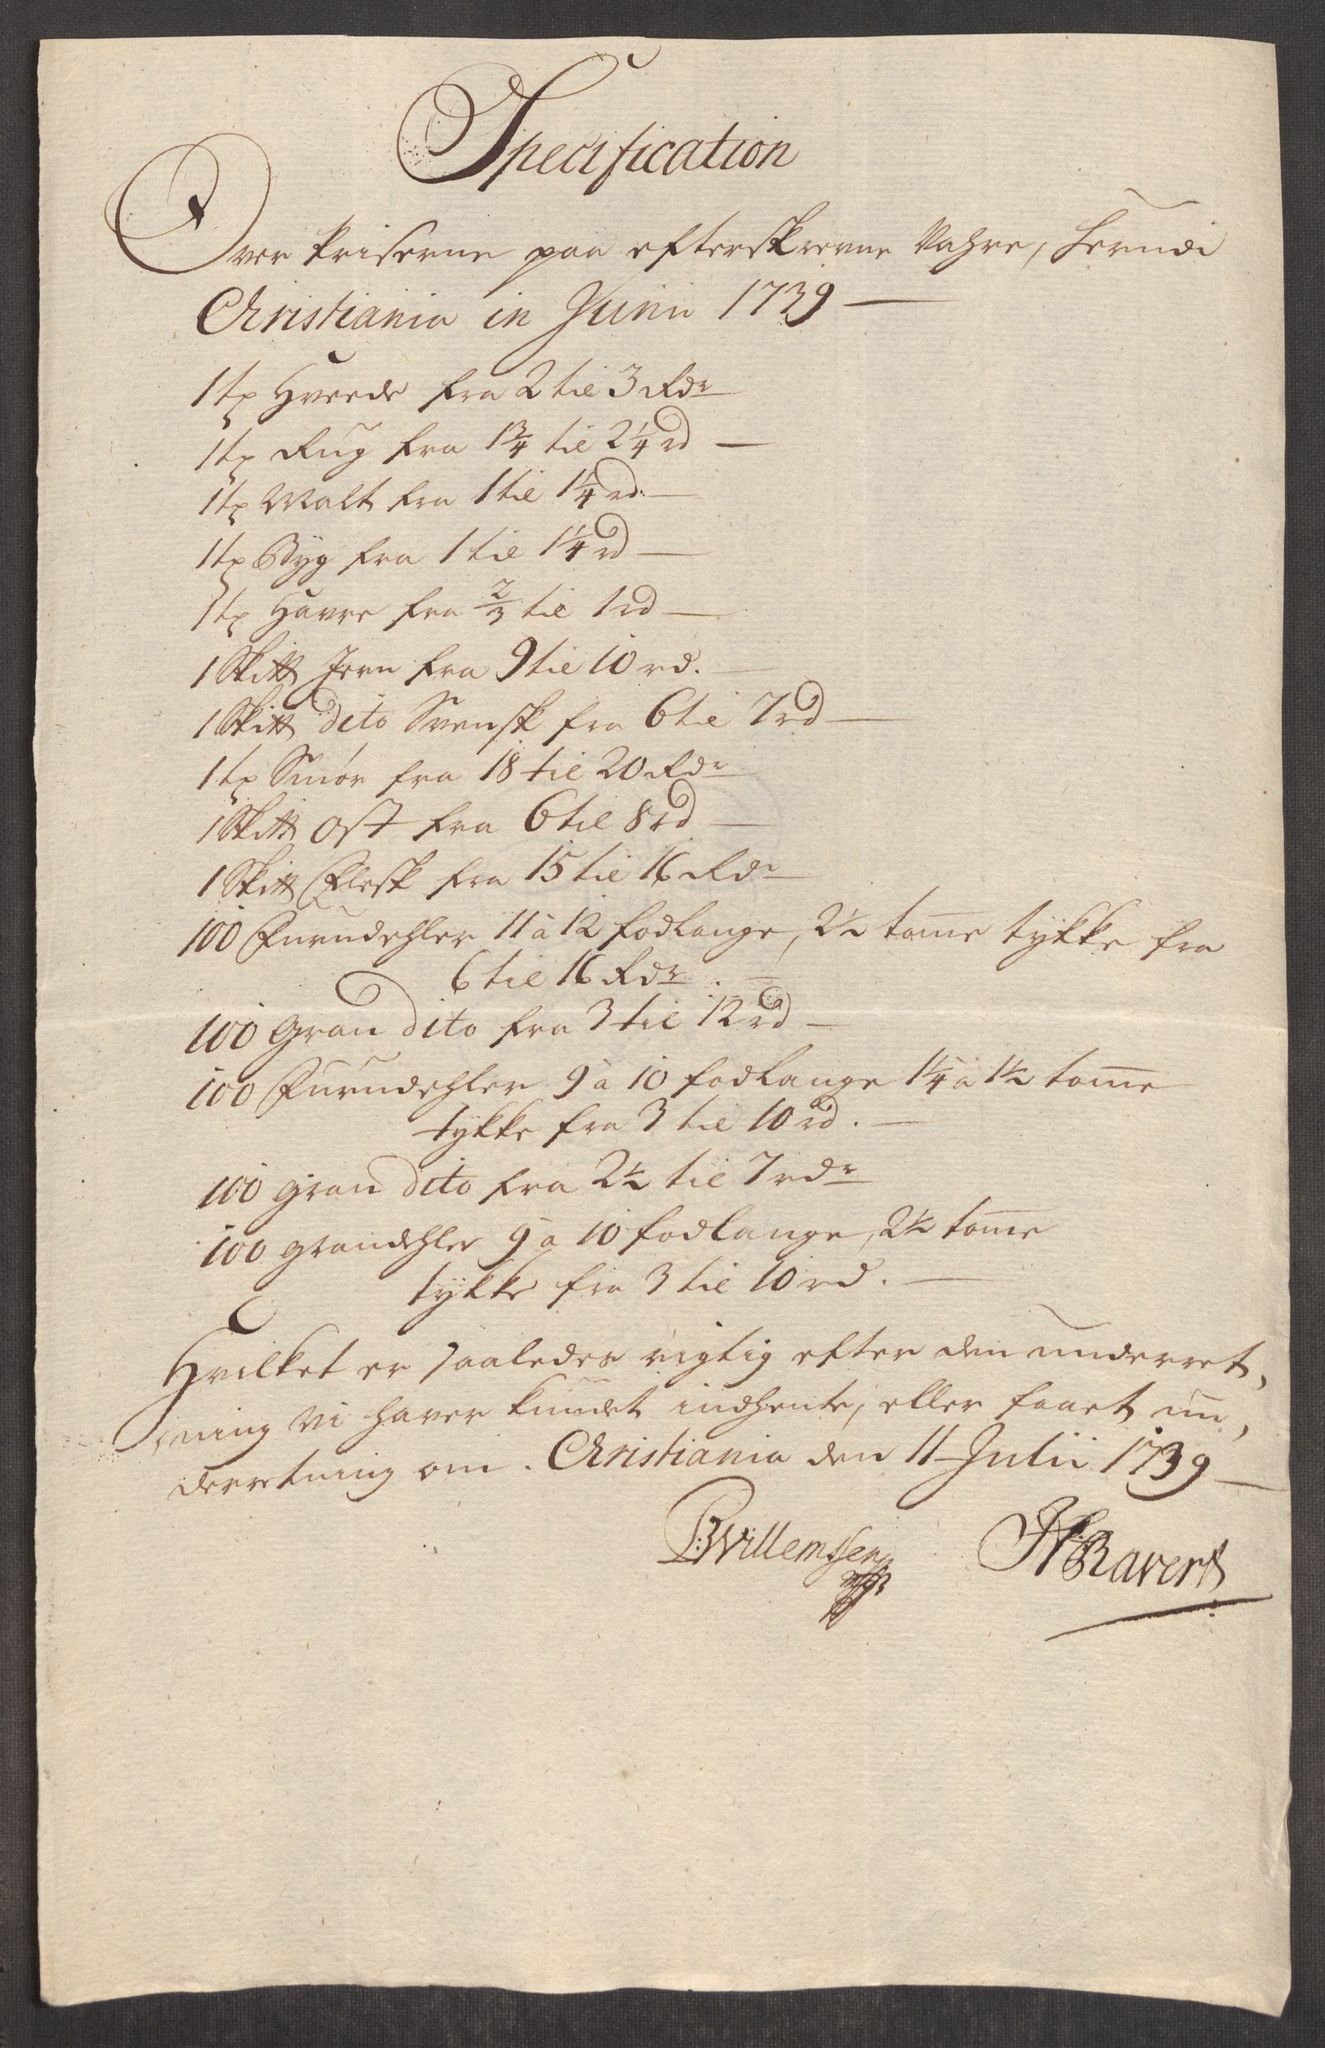 Specification
Over Priserne paa efterskrevne Vahre, herudi
Christiania in Junii 1739
1 tr Hvede fra 2 til 3 Rdr
1 tr Rug fra 1¾ til 2¼ rd
1 tr Malt fra 1 til 1¼ rd.
1 tr Byg fra 1 til 1¼ rd
1 tr Havre fra ⅔ til 1 rd
1 Skitt Jern fra 9 til 10 rd.
1 Skitt dito Svensk fra 6 til 7 rd
1 tr Smör fra 18 til 20 Rdr
1 Skitt Ost fra 6 til 8 rd
1 Skitt Flesk fra 15 til 16 Rdr
100 Furudehler 11 à 12 fodlange, 2½ tom̄e tykke fra
6 til 16 Rdr.
100 Gran dito fra 3 til 12 rd
100 Furudehler 9 à 10 fodlange 1¼ à 1½ tom̄e
tykke fra 3 til 10 rd.
100 gran dito fra 2½ til 7 rdr
100 grandehler 9 à 10 fodlange, 2½ tom̄e
tykke fra 3 til 10 rd.
Hvilket er saaledes rigtig efter den underret,
ning vi haver kundet indhente, eller faaet un,
derretning om. Christiania den 11 Julii 1739
BWillemssen HRavert